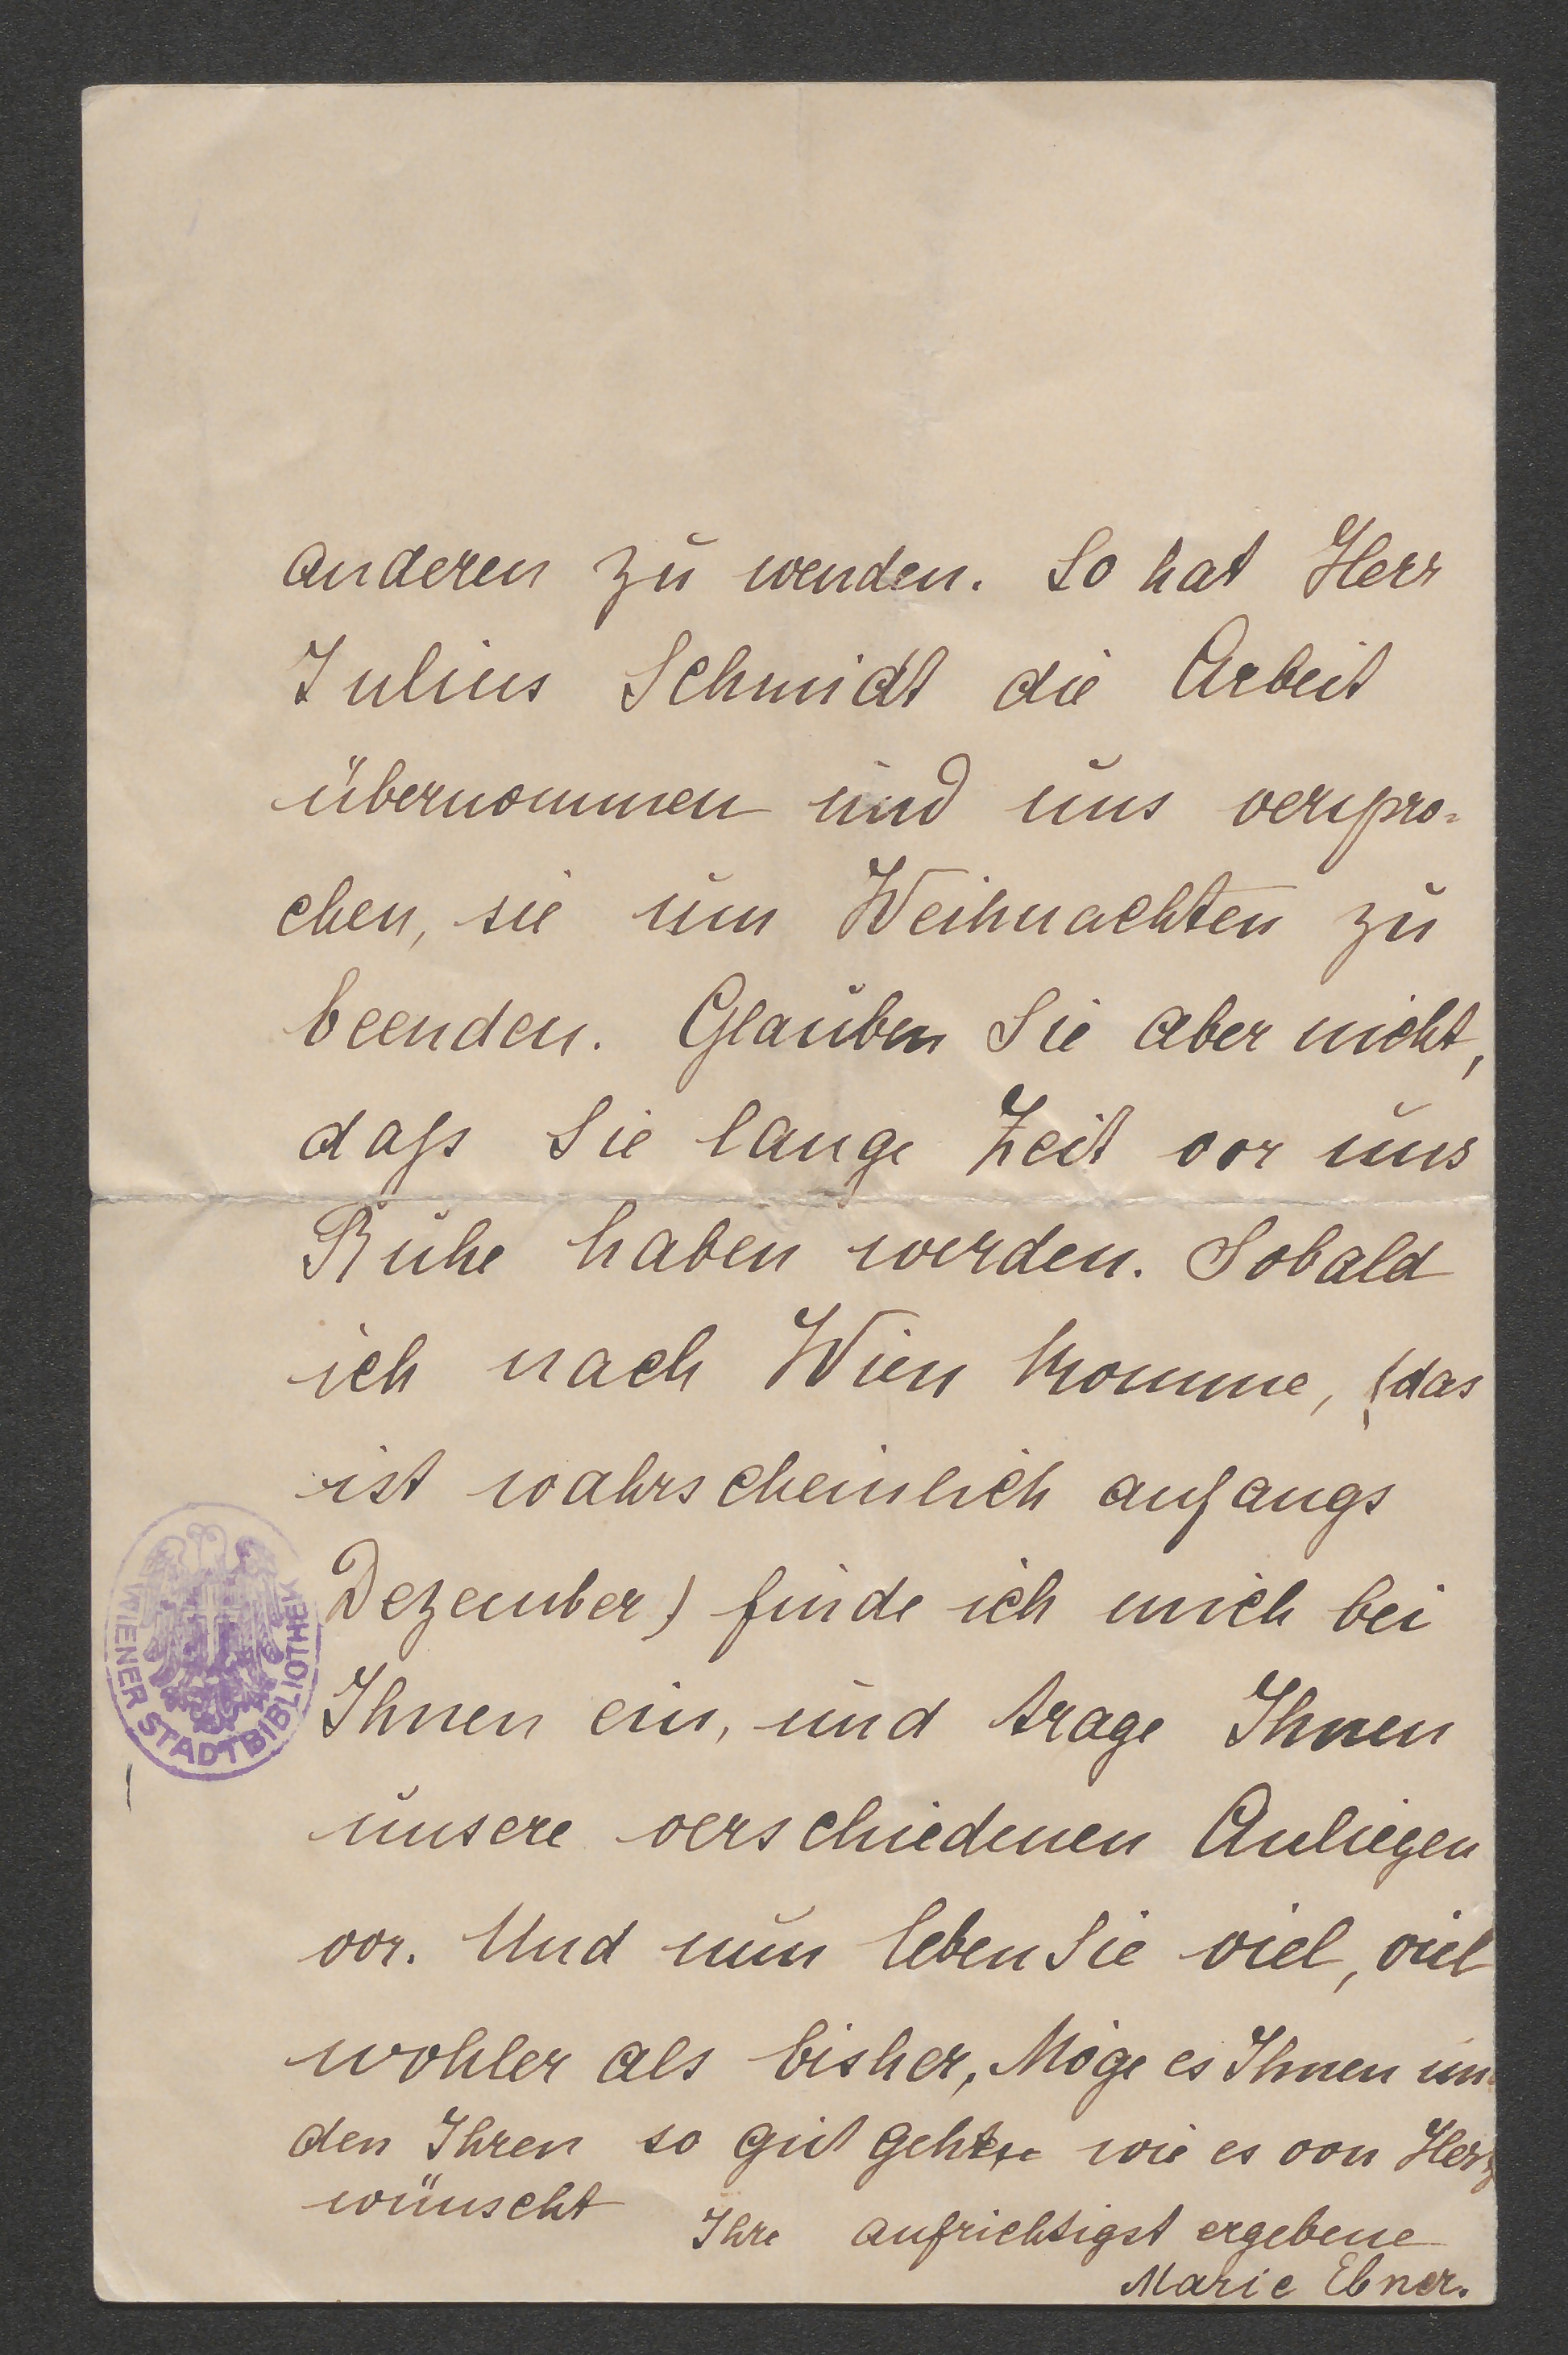 anderen zu wenden. So hat Herr
Julius Schmidt die Arbeit
übernommen und uns verspro-
chen, sie um Weihnachten zu
beenden. Glauben Sie aber nicht,
daſs Sie lange Zeit vor uns
Ruhe haben werden. Sobald
ich nach Wien komme, (das
ist wahrscheinlich anfangs
Dezember) finde ich mich bei
Ihnen ein, und trage Ihnen
unsere verschiedenen Anliegen
vor. Und nun leben Sie viel, viel
wohler als bisher, Möge es Ihnen un
den Ihren so gut gehen wie es von Herz
wünscht
Ihre aufrichtigst ergebene
Marie Ebner.
WIENER STADTBIBLIOTHEK